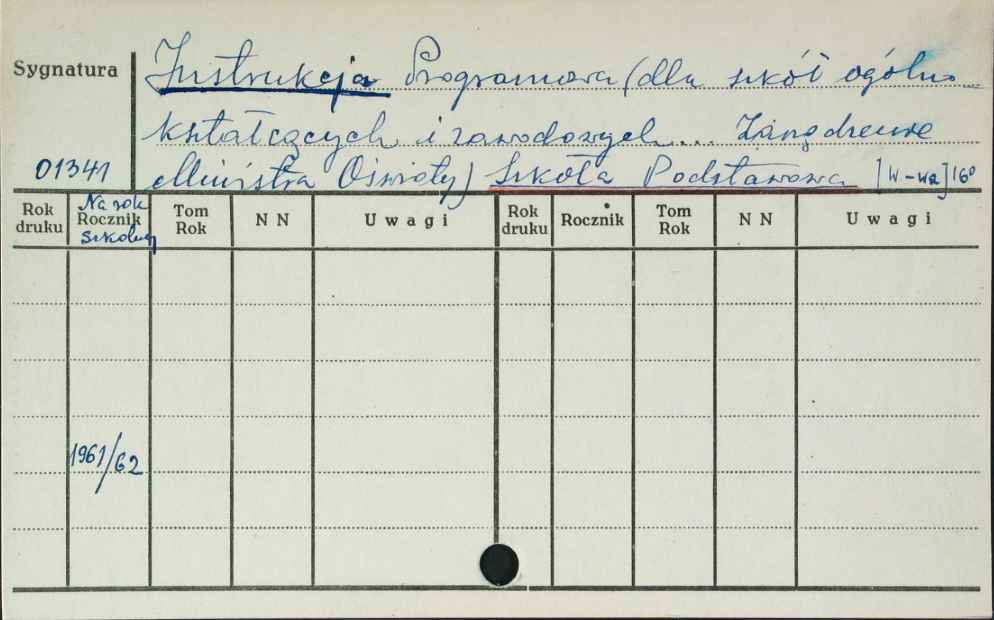 Sygnatura
Instrukcja Programowa (dla szkół ogólno
kształcących i zawodowych... Zarządzenie
01341
Ministra Oświaty) Szkoła Podstawowa [W-wa] 16°
Rok druku
Na rok
Rocznik
szkolny
Tom Rok
N N
Uwagi
Rok druku
Rocznik
Tom Rok
N N
Uwagi
1961/62